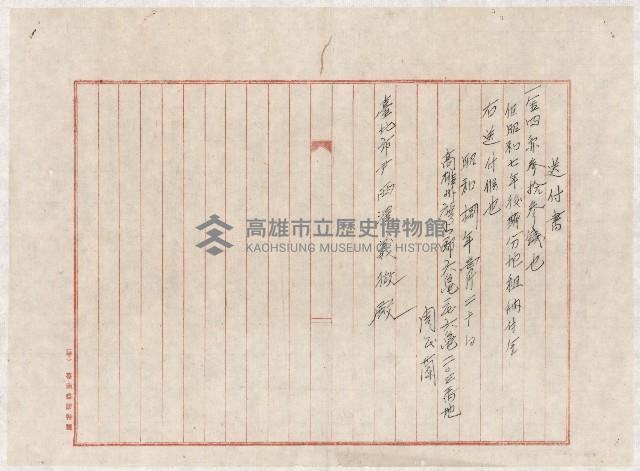 送付書
一金四系参拾参錢也
但昭和七年後期分地租納付金
右送付候也
昭和捌年壹月二十日
高雄州旗山郡六龜庄六龜二〇五番地
周公蘭
臺北市戸西澤義徴殿
高雄市立歷史博物館
KAOHSIUNG MUSEUM OF HISTORY